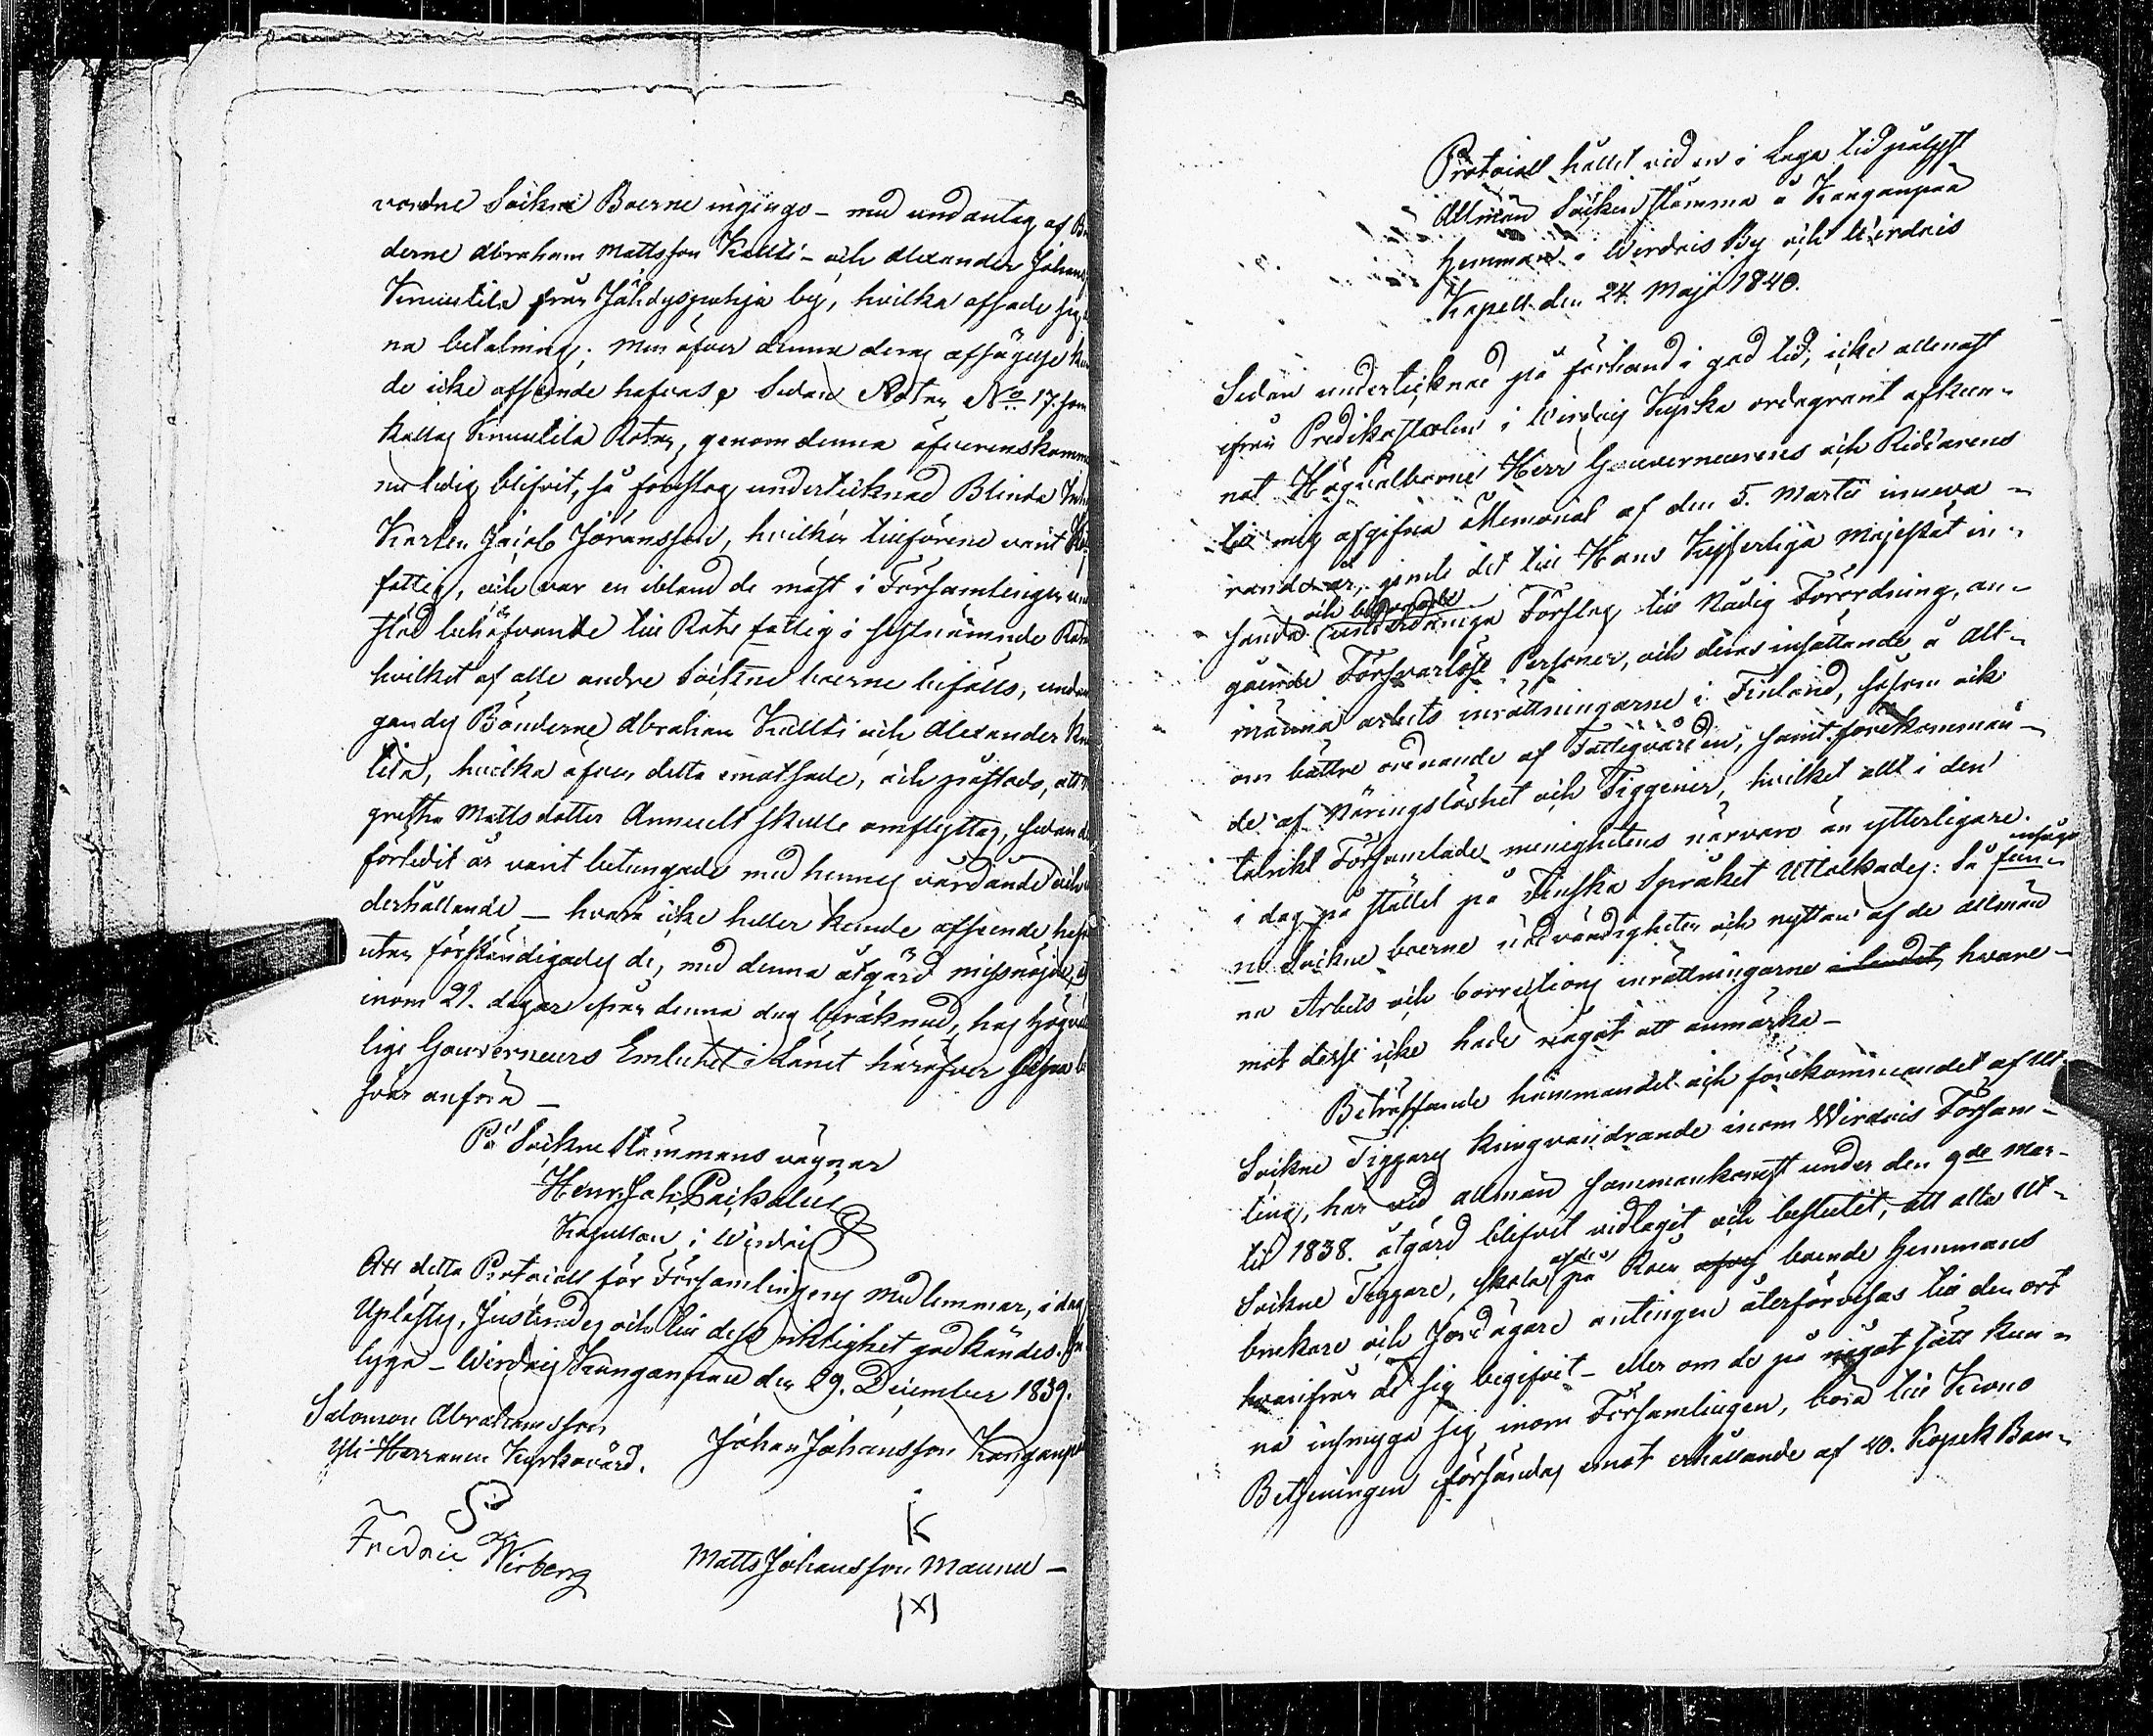 vordne Sockne Boerne ingingo – med undantag af
derne Abraham Mattsson Kallti – och Alexander Johans
Knuutila från Jähdyspohja by, hvilka afsade sig
na betalning; men öfver denna deras afsägelse
de icke afseende hafvas. Sedan Roten No 17. som
kallas Knuutila Roten, genom denna öfverenskomme
nu ledig blifvit, så föreslog undertecknad Blinda
Karlen Jacob Göransson, hvilken tillförene varit
fattig, och var en ibland de mäst i Församlingen
stöd behöfvande till Rote fattig i sistnämnde Rote
hvilket af alle andre Sockne boerne bifölls, undan
gandes Bönderne Abraham Kallti och Alexander
tila, hvilka äfven detta emotsade, och påstodo, att
gretha Mattsdotter Annuelt skulle omflyttas, sedan de
förledit år varit betungade med hennes vårdande och
derhållande – hvara icke heller kunde afseende
utan förständigades de, med denna åtgärd missnöjde,
inom 21. dagar ifrån denna dag beräknad, hos Högväl
lige Gouverneurs Embetet i Länet häröfver sina be
svär anföra –
På Sockne Stämmans vägnar
Henr. Joh. Paikalin
Kapellan i Wirdois
Att detta Protocoll för Församlingens medlemmar, i dag
Uplästes, Justerades och till dess riktighet godkändes.
lyga – Wirdois Kanganpää den 29. December 1839.
Salomon Abrahamsson
Yli-Herranen Kyrkovärd.
Johan Johansson Kanganpää
Fredric Wirberg
K
Matts Johansson Maunu –
|X|
Protocoll hållit vid en i Laga tid pålyst
Allmän Sockenstämma å Kanganpää
Hemman i Wirdois By och Wirdois
Kapell den 24. Maji 1840.
Sedan undertecknad på förhand i god tid, icke allenast
ifrån Predikostolen i Wirdois Kyrka ordagrant afkun-
nat Högvälborne Herr Gouverneurens och Riddarens
till mig afgifna Memorial af den 5. Martii inneva-
rande år, jemte det till Hans Kejserliga Majestät in-
sända underdåniga Förslag till Nådig Förordning, an-
gående Försvarlöse Personer, och deras insättande å All-
männa arbets inrättningarne i Finland, såsom ock
om bättre ordnande af Fattigvården, samt förekomman-
de af Näringslöshet och Tiggeriet, hvilket allt i den
talrikt Församlade menighetens närvaro än ytterligare
i dag på stället på Finska Språket Uttolkades: Så insågo
Sockne boerne nödvändigheten och nyttan af de allmän
na Arbets och Corrections inrättningarne i landet, hvare-
mot desse icke hade något att anmärka –
Beträffande hämmandet och förekommandet af Ut-
Sockne Tiggares kringvandrande inom Wirdois Försam-
ling, har vid allmän sammankomst under den 9de Mar-
tii 1838. åtgärd blifvit vidtagit och beslutit, att alla Ut-
Sockne Tiggare, skola af den på Roen boende Hemmans
brukare och Jordägare antingen återförvisas till den ort
hvarifrån de sig begifvit – eller om de på något sätt kun-
na insmyga sig inom Församlingen, böra till Krono
Betjeningen försändas emot erhållande af 40. Kopek Ban-